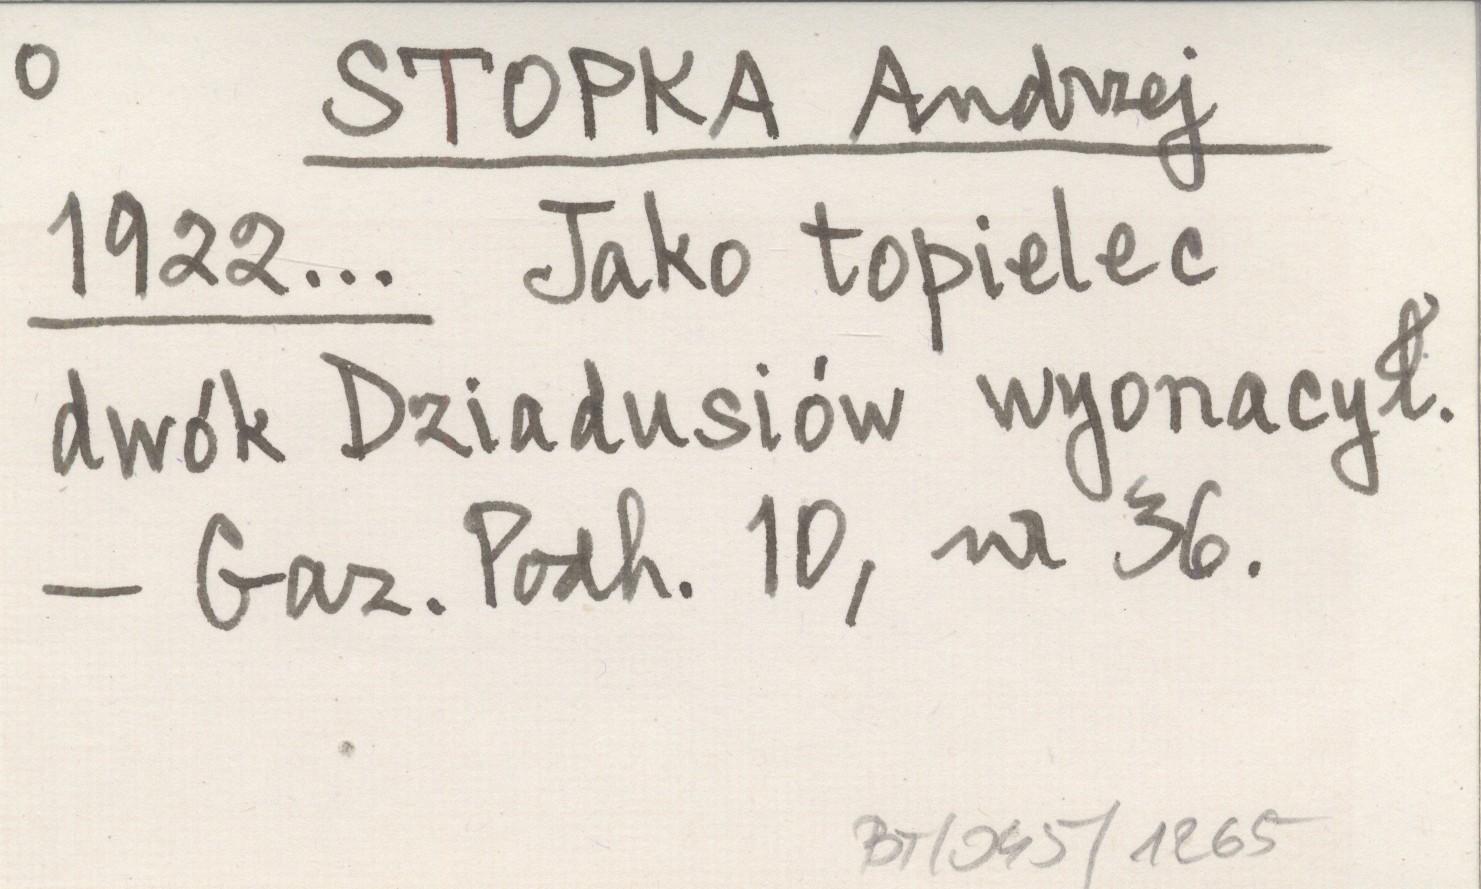 o STOPKA Andrzej
1922... Jako topielec
dwók Dziadusiów wyonacył.
— Gaz. Podh. 10, nr 36.
BT/045/1265